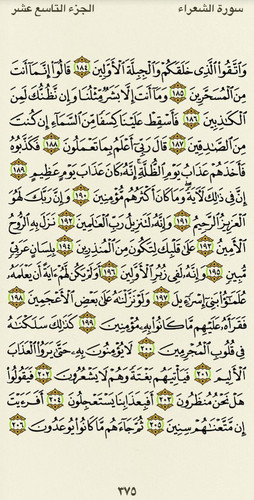 سورة الشعراء الجزء التاسع عشر
وَاتَّقُوا الَّذِي خَلَقَكُمْ وَالْجِبِلَّةَ الْأَوَّلِينَ ١٨٤ قَالُوا إِنَّمَا أَنتَ
مِنَ الْمُسَحَّرِينَ ١٨٥ وَمَا أَنتَ إِلَّا بَشَرٌ مِّثْلُنَا وَإِن نَّظُنُّكَ لَمِنَ
الْكَاذِبِينَ ١٨٦ فَأَسْقِطْ عَلَيْنَا كِسَفًا مِّنَ السَّمَاءِ إِن كُنتَ
مِنَ الصَّادِقِينَ ١٨٧ قَالَ رَبِّي أَعْلَمُ بِمَا تَعْمَلُونَ ١٨٨ فَكَذَّبُوهُ
فَأَخَذَهُمْ عَذَابُ يَوْمِ الظُّلَّةِ إِنَّهُ كَانَ عَذَابَ يَوْمٍ عَظِيمٍ ١٨٩
إِنَّ فِي ذَٰلِكَ لَآيَةً وَمَا كَانَ أَكْثَرُهُم مُّؤْمِنِينَ ١٩٠ وَإِنَّ رَبَّكَ لَهُوَ
الْعَزِيزُ الرَّحِيمُ ١٩١ وَإِنَّهُ لَتَنزِيلُ رَبِّ الْعَالَمِينَ ١٩٢ نَزَلَ بِهِ الرُّوحُ
الْأَمِينُ ١٩٣ عَلَىٰ قَلْبِكَ لِتَكُونَ مِنَ الْمُنذِرِينَ ١٩٤ بِلِسَانٍ عَرَبِيٍّ
مُّبِينٍ ١٩٥ وَإِنَّهُ لَفِي زُبُرِ الْأَوَّلِينَ ١٩٦ أَوَلَمْ يَكُن لَّهُمْ آيَةً أَن يَعْلَمَهُ
عُلَمَاءُ بَنِي إِسْرَائِيلَ ١٩٧ وَلَوْ نَزَّلْنَاهُ عَلَىٰ بَعْضِ الْأَعْجَمِينَ ١٩٨
فَقَرَأَهُ عَلَيْهِم مَّا كَانُوا بِهِ مُؤْمِنِينَ ١٩٩ كَذَٰلِكَ سَلَكْنَاهُ
فِي قُلُوبِ الْمُجْرِمِينَ ٢٠٠ لَا يُؤْمِنُونَ بِهِ حَتَّىٰ يَرَوُا الْعَذَابَ
الْأَلِيمَ ٢٠١ فَيَأْتِيَهُم بَغْتَةً وَهُمْ لَا يَشْعُرُونَ ٢٠٢ فَيَقُولُوا
هَلْ نَحْنُ مُنظَرُونَ ٢٠٣ أَفَبِعَذَابِنَا يَسْتَعْجِلُونَ ٢٠٤ أَفَرَأَيْتَ
إِن مَّتَّعْنَاهُمْ سِنِينَ ٢٠٥ ثُمَّ جَاءَهُم مَّا كَانُوا يُوعَدُونَ ٢٠٦
٣٧٥